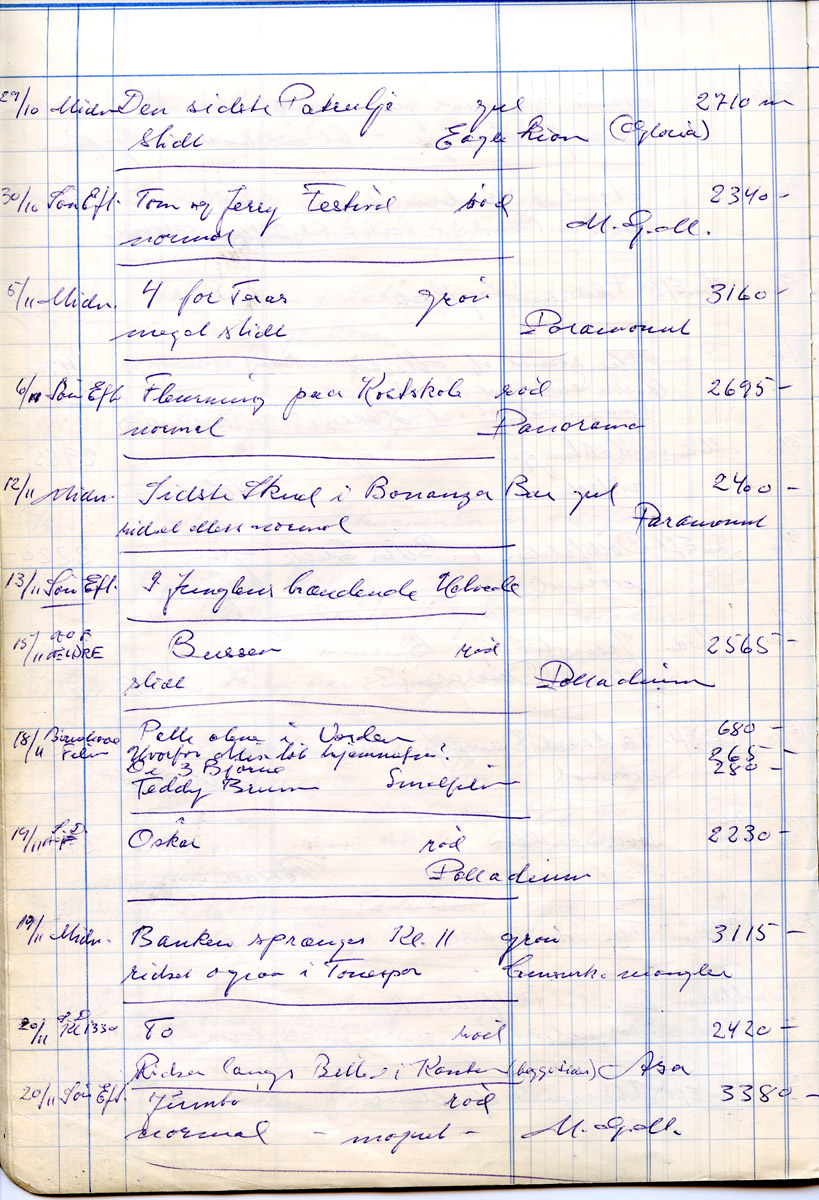 29/10 Midn Den sidste Patrulje gul 2710 m
Slidt Eagle Lion (Gloria)
30/10 Søn Eft. Tom og Jerry Festival rød 2340 -
normal M.G.M.
5/11 Midn. 4 for Texas grøn 3160 -
meget slidt Paramount
6/11 Søn Eft paa Kostskole rød 2695 -
normal Panorama
12/11 Midn. Sidste Skud i Bonanza Bar gul 2400 -
ridset ellers normal Paramount
13/11 Søn Eft. I Junglens brændende Helvede
15/11 FOR ÆLDRE Bussen rød 2565 -
slidt Palladium
18/11 Børnehave Film Pelle alene i Verden 680 -
Hvorfor Misse løb hjemmefra. 265 -
De 3 Bjørne 280 -
Teddy Bruun Smalfilm
19/11 Oskar rød 2230 -
Palladium
19/11 Midn. Banken sprænges Kl. 11 grøn 3115 -
ridset ogsaa i Tonespor mangler
20/11 Kl 1330 To rød 2420 -
Ridser langs Billed i Kanten (begge sider) Asa
20/11 Søn Eft. Jumbo rød 3380 -
normal - - M.G.M.